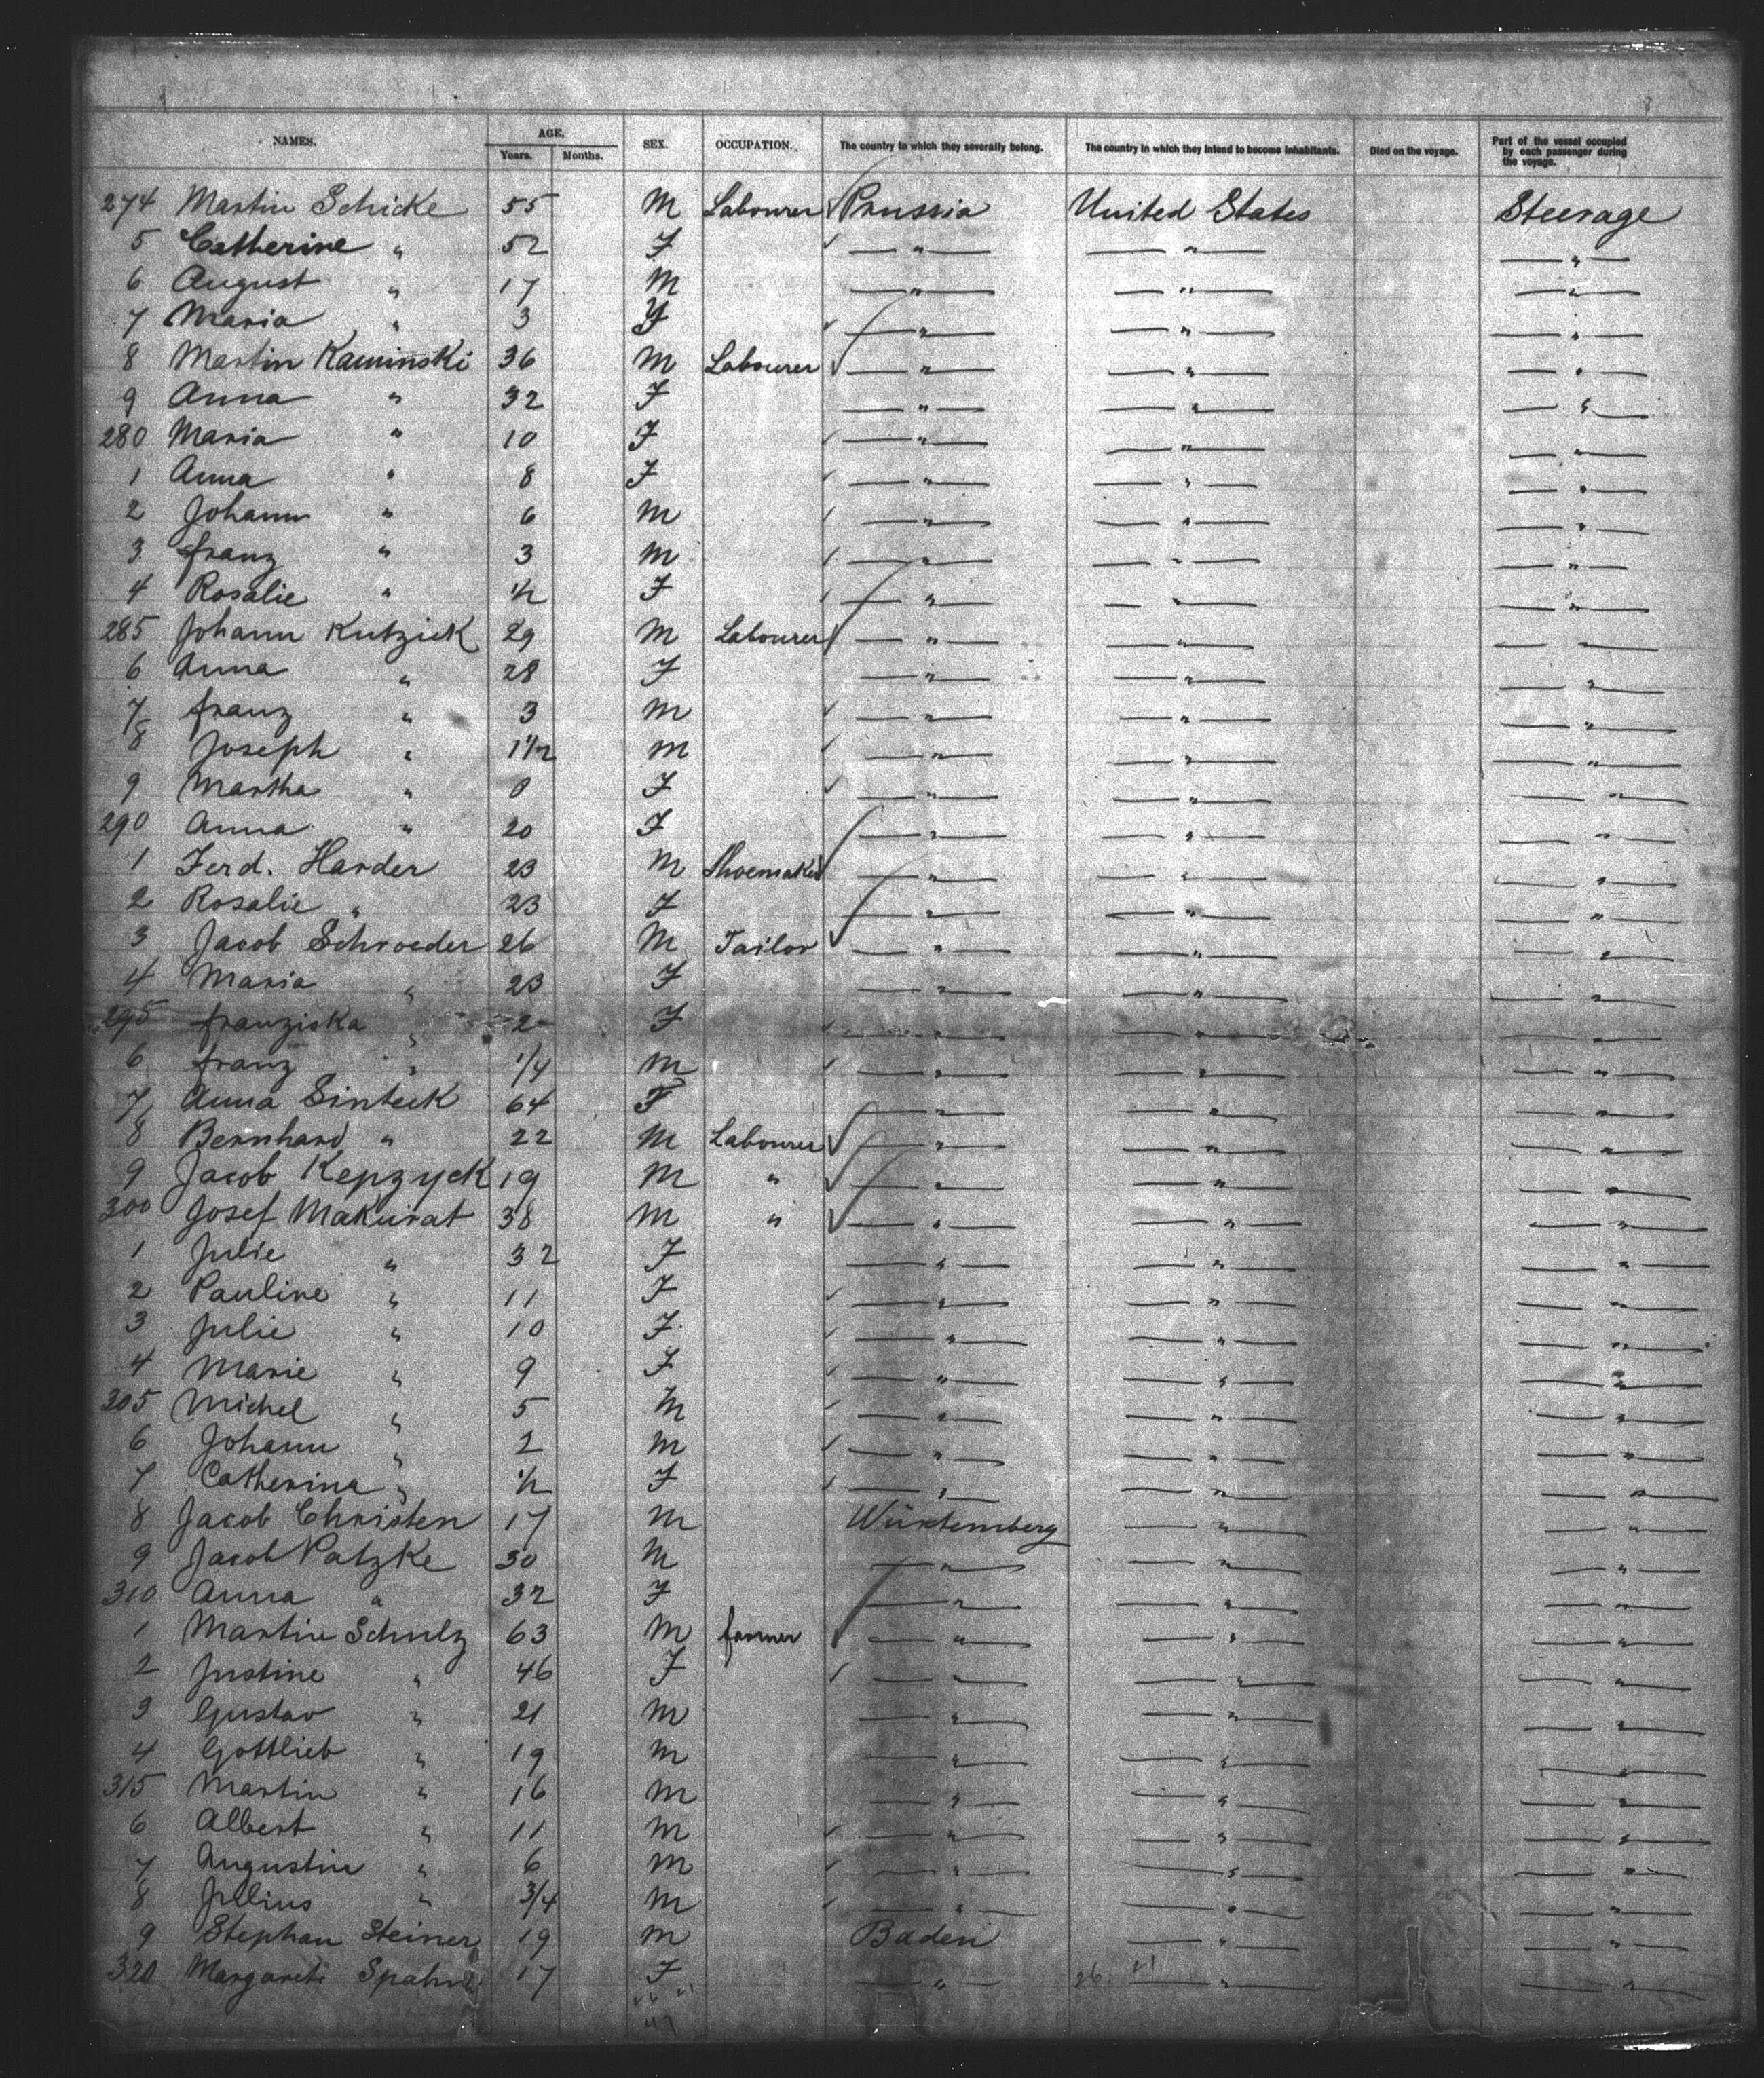 NAMES. AGE. SEX. OCCUPATION. The country to which they severally belong. The country in which they intend to become inhabitants. Died on the voyage. Part of the vessel occupied by each passenger during the voyage.
Years. Months.
274 Martin Schicke 55 M Labourer Prussia United States Steerage
5 Catherine " 52 F — " — — " — — " —
6 August " 17 M — " — — " — — " —
7 Maria " 3 F — " — — " — — " —
8 Martin Kaminski 36 M Labourer — " — — " — — " —
9 Anna " 32 F — " — — " — — " —
280 Maria " 10 F — " — — " — — " —
1 Anna " 8 F — " — — " — — " —
2 Johann " 6 M — " — — " — — " —
3 franz " 3 M — " — — " — — " —
4 Rosalie " 1/2 F — " — — " — — " —
285 Johann Kutzick 29 M Labourer — " — — " — — —
6 Anna " 28 F — " — — " — — " —
7 franz " 3 M — " — — " — — " —
8 Joseph " 1 1/2 M — " — — " — — " —
9 Martha " 0 F — " — — " — — " —
290 Anna " 20 F — " — — " — — " —
1 Ferd. Harder 23 M Shoemaker — " — — " — — " —
2 Rosalie " 23 F — " — — " — — " —
3 Jacob Schroeder 26 M Tailor — " — — " — — " —
4 Maria " 23 F — " — — " — — " —
295 franziska " 2 F — " — — " — — " —
6 franz " 1/4 M — " — — " — — " —
7 Anna Sinteck 64 F — " — — " — — " —
8 Bernhard " 22 M Labourer — " — — " — — " —
9 Jacob Kepzyck 19 M " — " — — " — — " —
300 Josef Makurat 38 M " — " — — " — — " —
1 Julie " 32 F — " — — " — — " —
2 Pauline " 11 F — " — — " — — " —
3 Julie " 10 F — " — — " — — " —
4 Marie " 9 F — " — — " — — " —
305 Michel " 5 M — " — — " — — " —
6 Johann " 2 M — " — — " — — " —
7 Catherina " 1/2 F — " — — " — — " —
8 Jacob Christen 17 M Würtemberg — " — — " —
9 Jacob Patzke 30 M — " — — " — — " —
310 Anna " 32 F — " — — " — — " —
1 Martin Schulz 63 M farmer — " — — " — — " —
2 Justine " 46 F — " — — " — — " —
3 Gustav " 21 M — " — — " — — " —
4 Gottlieb " 19 M — " — — " — — " —
315 Martin " 16 M — " — — " — — " —
6 Albert " 11 M — " — — " — — " —
7 Augustin " 6 M — " — — " — — " —
8 Julius " 3/4 M — " — — " — — " —
9 Stephan Steiner 19 M Baden — " — — " —
320 17 F — " — — " — — " —